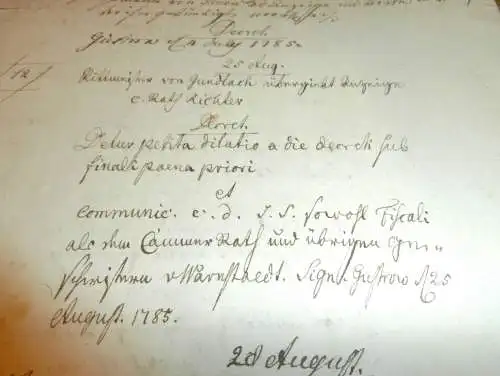 Decret.
Güstrow d 4 July 1785.
25 Aug.
12/ Rittmeister von Gundlach übergiebt Anzeige
c. Rath Richter
Decret.
Detur petita dilatio a die decreti sub
finali poena priori
et
communic. c. d. J. S. sowohl Fiscali
als dem Cammer Rath und übrigen Ge-
schwistern v Warnstaedt. Sign. Gustrow d 25
August. 1785.
28 August.